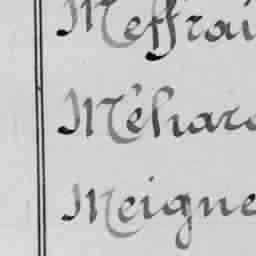 Meffrai
Méhara
Meigne